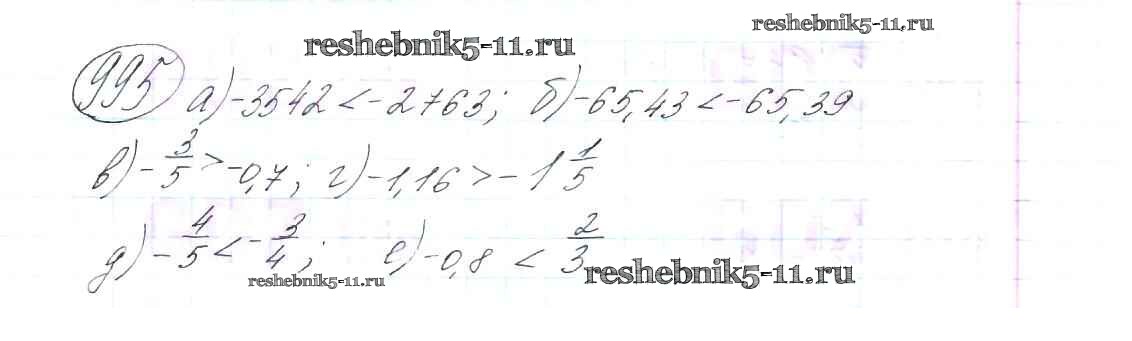 reshebnik5-11.ru
reshebnik5-11.ru
995 а) -3542 < -2763; б) -65,43 < -65,39
в) -3/5 > -0,7; г) -1,16 > -1 1/5
д) -4/5 < -3/4; е) -0,8 < 2/3
reshebnik5-11.ru
reshebnik5-11.ru